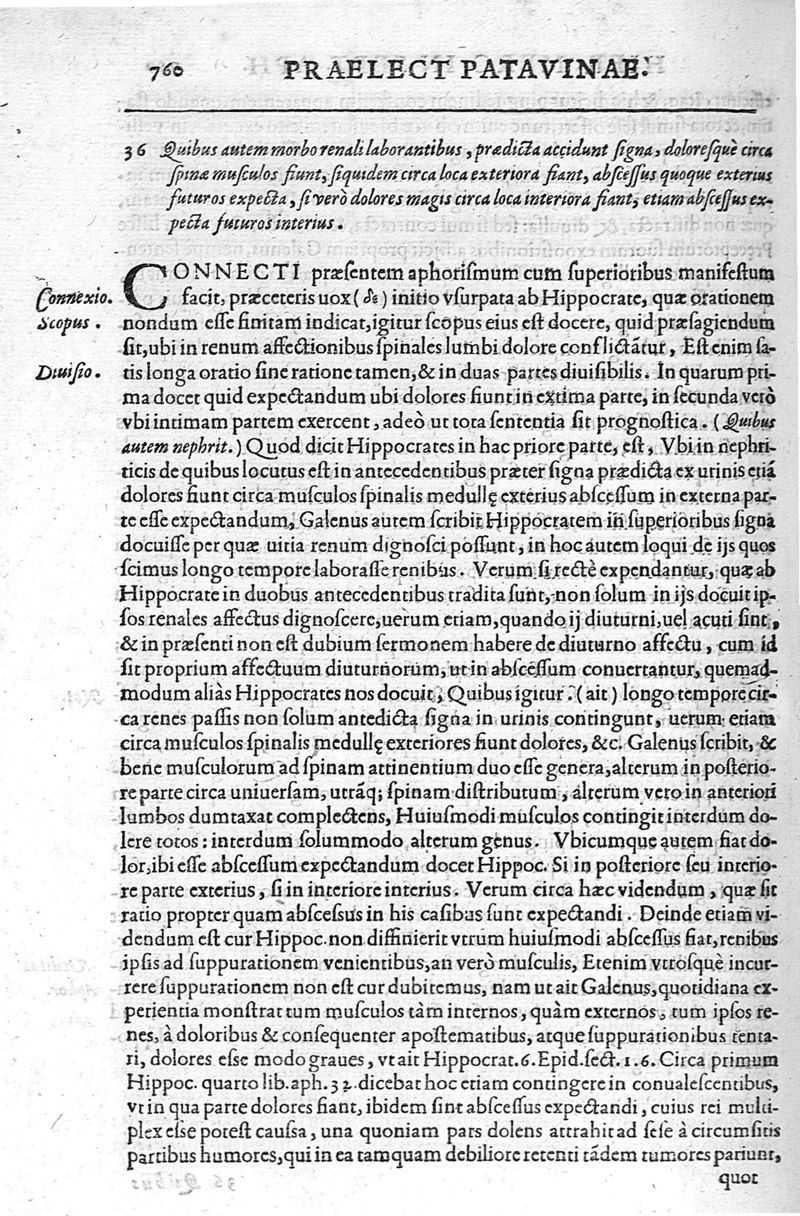 760 PRAELECT PATAVINAE.
36 Quibus autem morbo renali laborantibus, prædicta accidunt signa, doloresquè circa
spinæ musculos fiunt, siquidem circa loca exteriora fiant, abscessus quoque exterius
futuros expecta, si verò dolores magis circa loca interiora fiant, etiam abscessus ex-
pecta futuros interius.
CONNECTI præsentem aphorismum cum superioribus manifestum
Connexio. facit, præceteris uox (δε) initio vsurpata ab Hippocrate, quæ orationem
Scopus. nondum esse finitam indicat, igitur scopus eius est docere, quid præsagiendum
sit, ubi in renum affectionibus spinales lumbi dolore conflictātur, Est enim sa-
Diuisio. tis longa oratio sine ratione tamen, & in duas partes diuisibilis. In quarum pri-
ma docet quid expectandum ubi dolores fiunt in extima parte, in secunda verò
vbi intimam partem exercent, adeò ut tota sententia sit prognostica. (Quibus
autem nephrit.) Quod dicit Hippocrates in hac priore parte, est, Vbi in nephri-
ticis de quibus locutus est in antecedentibus præter signa prædicta ex urinis etiā
dolores fiunt circa musculos spinalis medullę exterius abscessum in externa par-
te esse expectandum, Galenus autem scribit Hippocratem in superioribus signa
docuisse per quæ uitia renum dignosci possunt, in hoc autem loqui de ijs quos
scimus longo tempore laborasse renibus. Verum si rectè expendantur, quæ ab
Hippocrate in duobus antecedentibus tradita sunt, non solum in ijs docuit ip-
sos renales affectus dignoscere, uerum etiam, quando ij diuturni, uel acuti sint,
& in præsenti non est dubium sermonem habere de diuturno affectu, cum id
sit proprium affectuum diuturnorum, ut in abscessum conuertantur, quemad-
modum aliàs Hippocrates nos docuit, Quibus igitur. (ait) longo tempore cir-
ca renes passis non solum antedicta signa in urinis contingunt, uerum etiam
circa musculos spinalis medullę exteriores fiunt dolores, &c. Galenus scribit, &
bene musculorum ad spinam attinentium duo esse genera, alterum in posterio-
re parte circa uniuersam, utrāq; spinam distributum, alterum vero in anteriori
lumbos dumtaxat complectens, Huiusmodi musculos contingit interdum do-
lere totos: interdum solummodo alterum genus. Vbicumque autem fiat do-
lor, ibi esse abscessum expectandum docet Hippoc. Si in posteriore seu interio-
re parte exterius, si in interiore interius. Verum circa hæc videndum, quæ sit
ratio propter quam abscessus in his casibus sunt expectandi. Deinde etiam vi-
dendum est cur Hippoc. non diffinierit vtrum huiusmodi abscessus fiat, renibus
ipsis ad suppurationem venientibus, an verò musculis, Etenim vtrosquè incur-
rere suppurationem non est cur dubitemus, nam ut ait Galenus, quotidiana ex-
perientia monstrat tum musculos tàm internos, quàm externos, tum ipsos re-
nes, à doloribus & consequenter apostematibus, atque suppurationibus tenta-
ri, dolores esse modo graues, vt ait Hippocrat. 6. Epid. sect. 1. 6. Circa primum
Hippoc. quarto lib. aph. 32. dicebat hoc etiam contingere in conualescentibus,
vt in qua parte dolores fiant, ibidem sint abscessus expectandi, cuius rei multi-
plex esse potest caussa, una quoniam pars dolens attrahit ad sese à circumsitis
partibus humores, qui in ea tamquam debiliore retenti tādem tumores pariunt,
quot